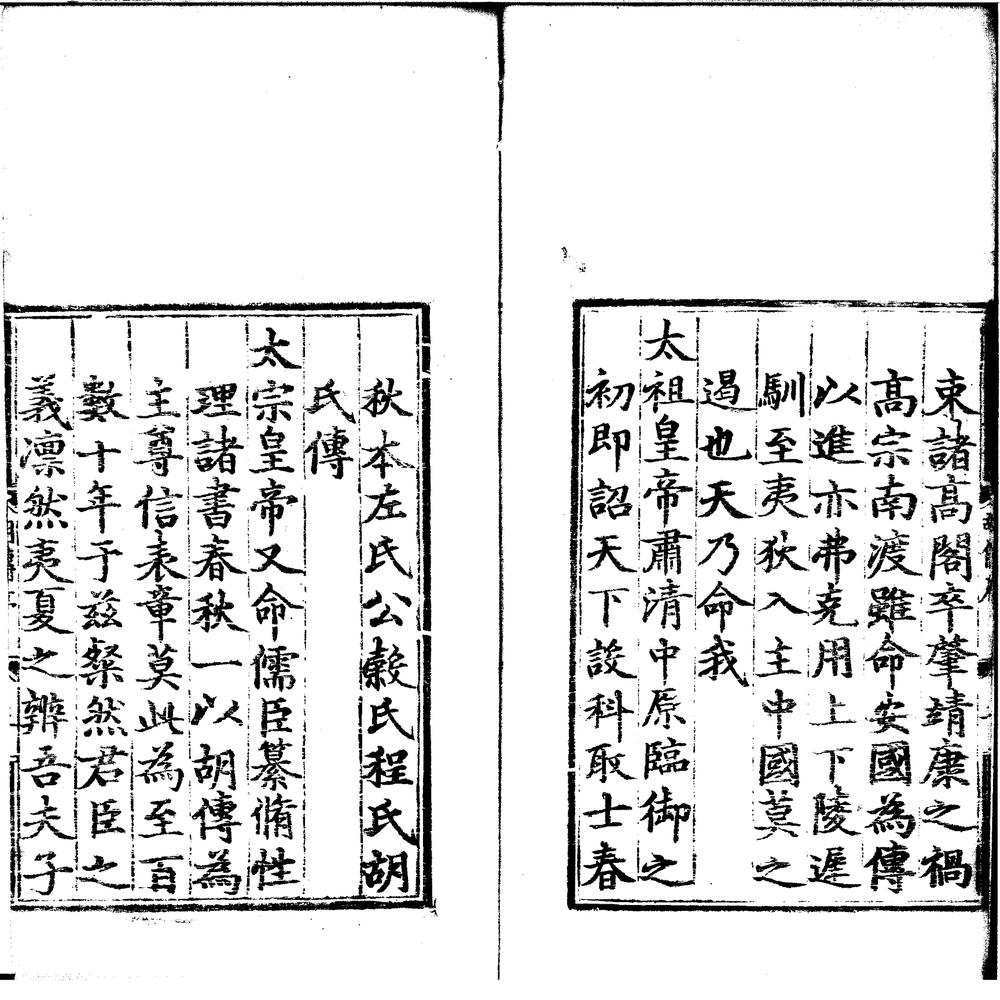 東諸高閣卒肇靖康之禍
高宗南渡雖命安國為傳
以進亦弗克用上下陵遲
馴至夷狄入主中國莫之
遏也天乃命我
太祖皇帝肅清中原臨御之
初即詔天下設科取士春
秋本左氏公穀氏程氏胡
氏傳
太宗皇帝又命儒臣纂脩性
理諸書春秋一以胡傳為
主尊信表章莫此為至百
數十年于茲粲然君臣之
義凛然夷夏之辨吾夫子